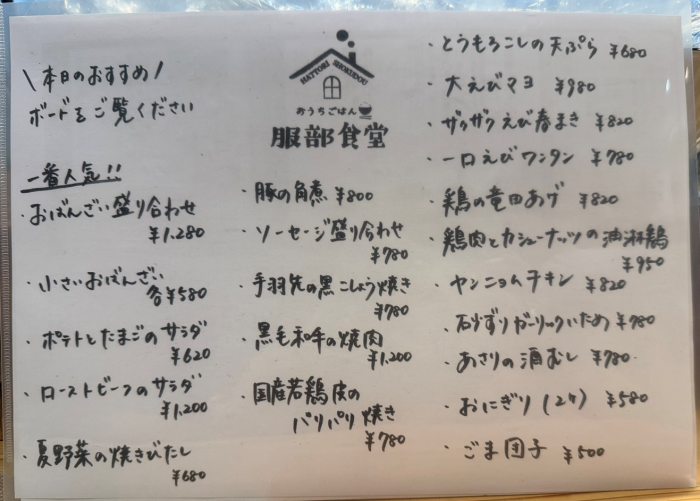 \本日のおすすめ/
ボードをご覧ください
一番人気!!
・おばんざい盛り合わせ
¥1.280
・小さいおばんざい
各¥580
・ポテトとたまごのサラダ
¥620
・ローストビーフのサラダ
¥1.200
・夏野菜の焼きびたし
¥680
HATTORI SHOKUDOU
おうちごはん
服部食堂
・豚の角煮 ¥800
・ソーセージ盛り合わせ
¥780
・手羽先の黒こしょう焼き
¥780
・黒毛和牛の焼肉
¥1.200
・国産若鶏皮の
パリパリ焼き
¥780
・とうもろこしの天ぷら ¥680
・大えびマヨ ¥980
・ザクザクえび春まき ¥820
・一口えびワンタン ¥780
・鶏の竜田あげ ¥820
・鶏肉とカシューナッツの油淋鶏
¥950
・ヤンニョムチキン ¥820
・砂ずりガーリックいため ¥780
・あさりの酒むし ¥780.
・おにぎり(2ヶ) ¥580
・ごま団子 ¥500